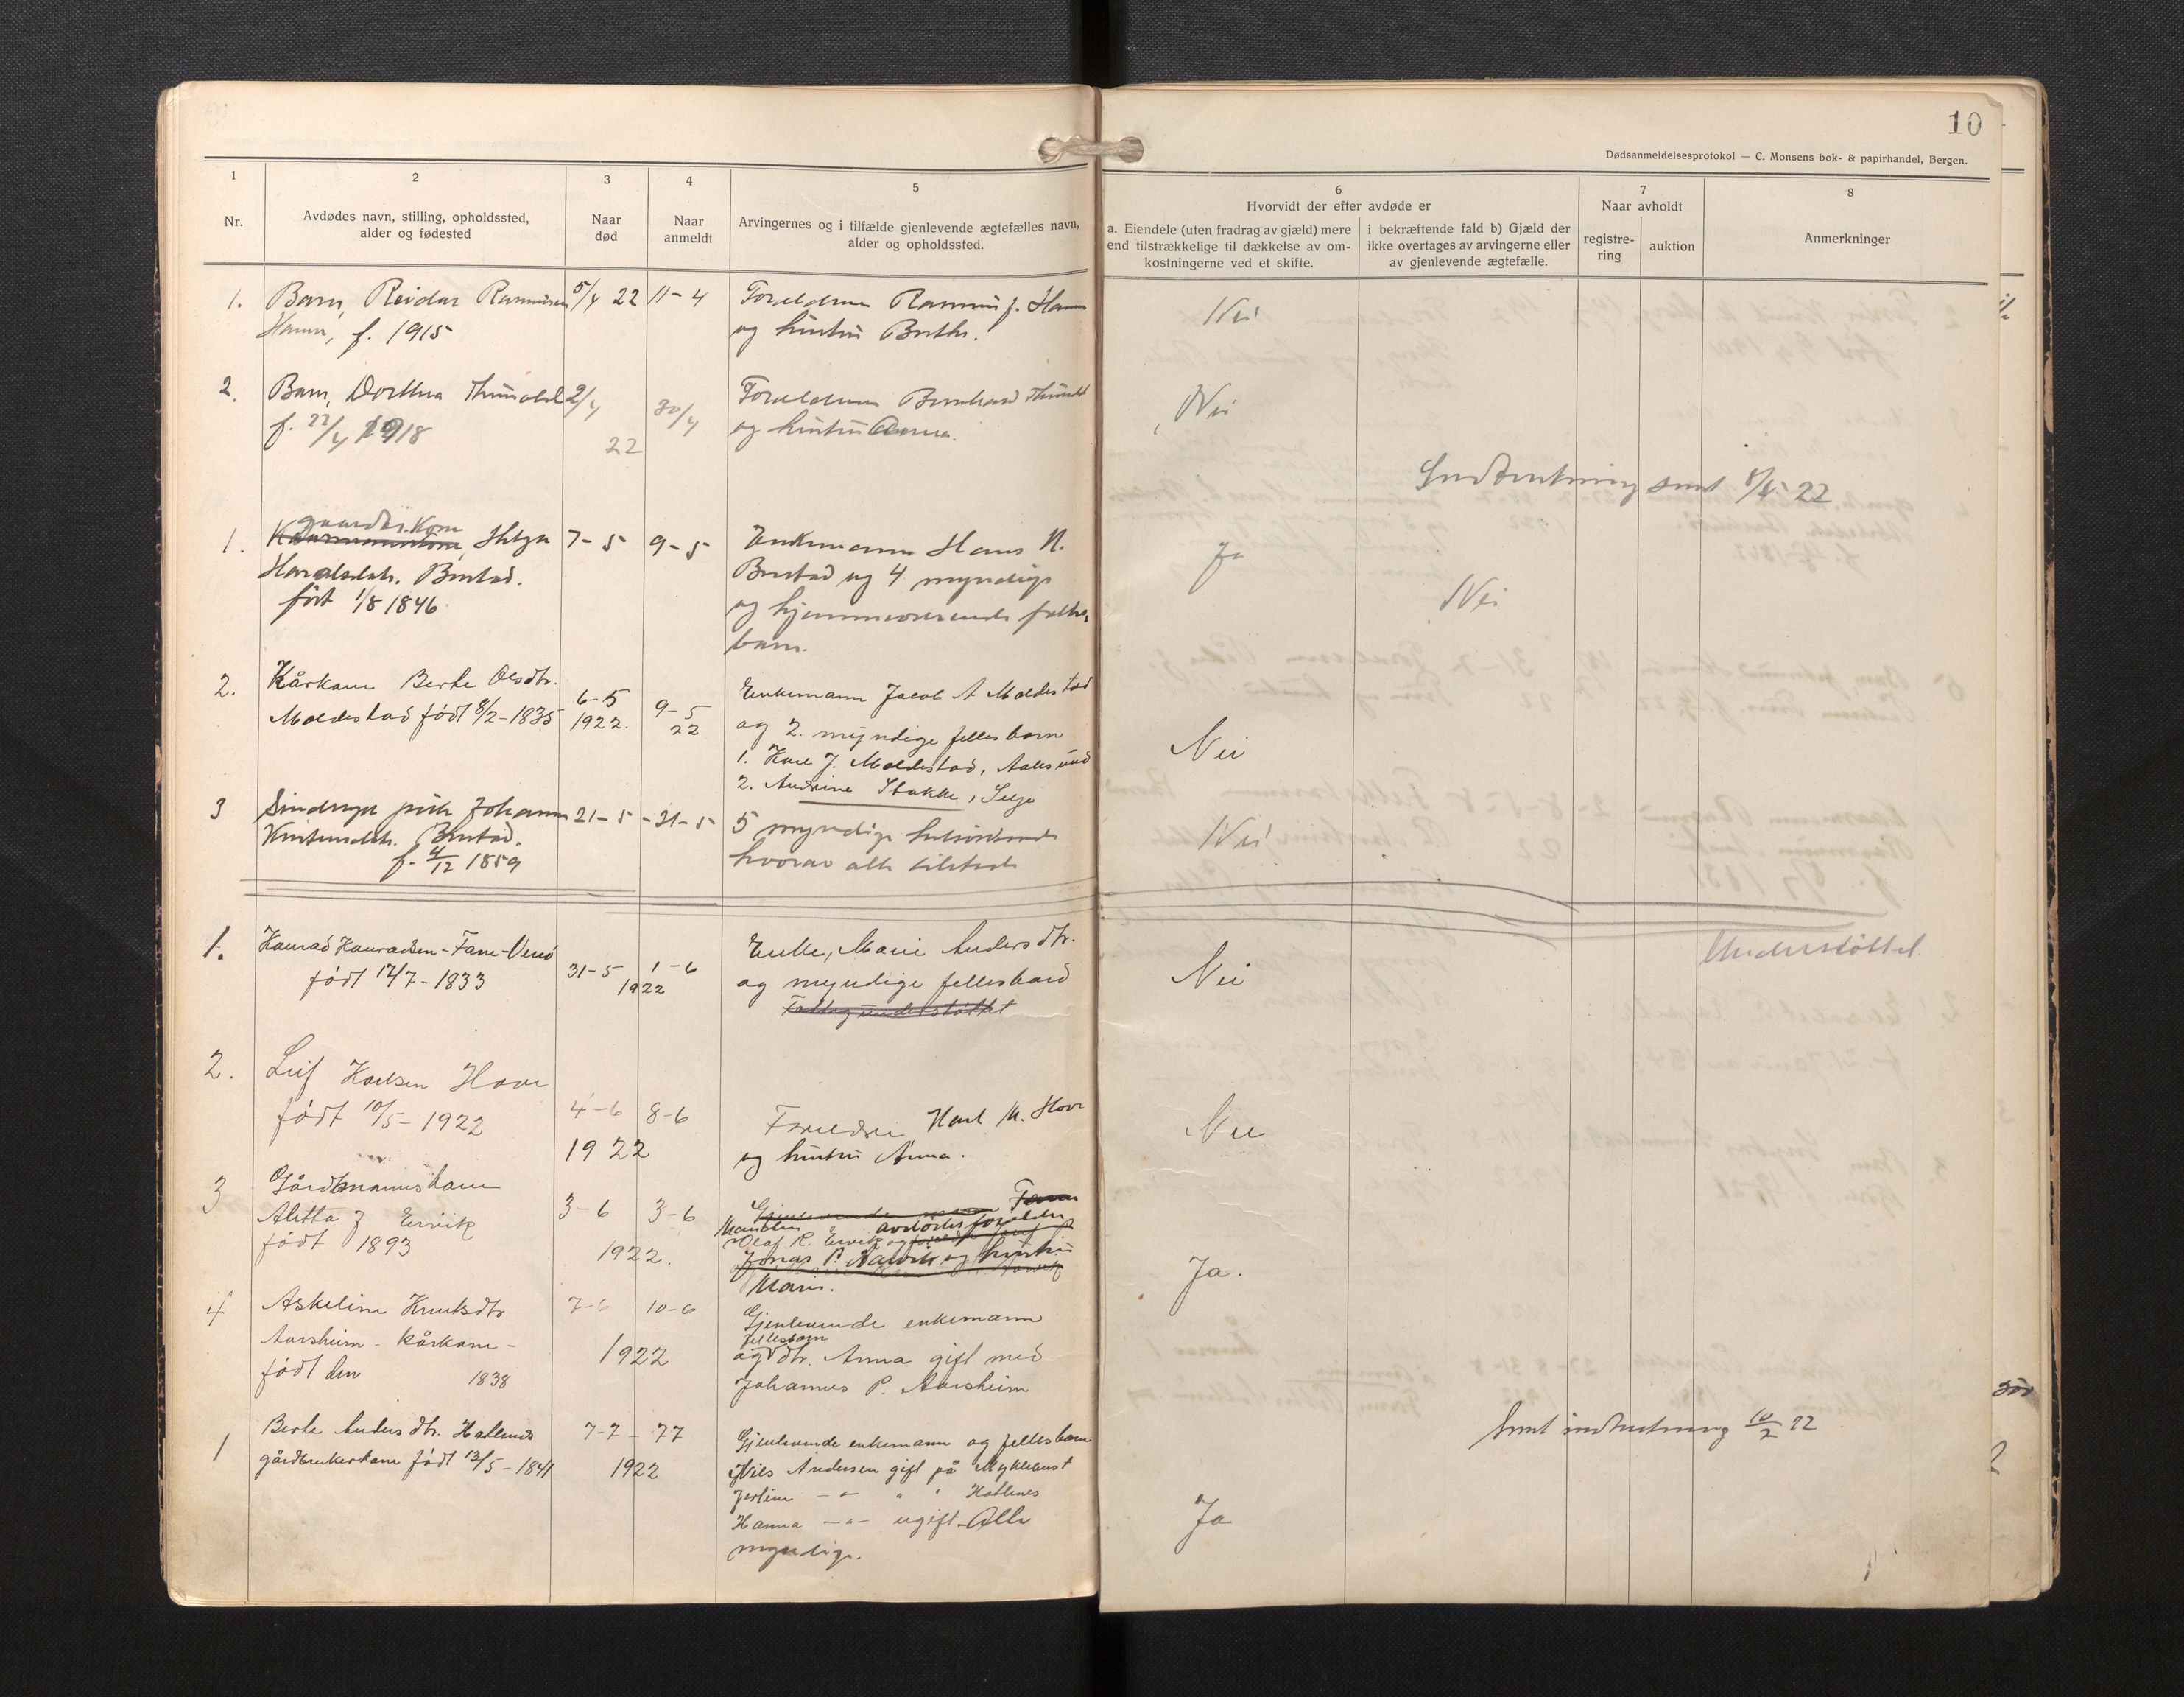 10
Dødsanmeldelsesprotokol — C. Monsens bok- & papirhandel, Bergen.
1
Nr.
2
Avdødes navn, stilling, opholdssted,
alder og fødested
3
Naar
død
4
Naar
anmeldt
5
Arvingernes og i tilfælde gjenlevende ægtefælles navn,
alder og opholdssted.
6
Hvorvidt der efter avdøde er
a. Eiendele (uten fradrag av gjæld) mere
end tilstrækkelige til dækkelse av om-
kostningerne ved et skifte.
i bekræftende fald b) Gjæld der
ikke overtages av arvingerne eller
av gjenlevende ægtefælle.
7
Naar avholdt
registre-
ring
auktion
8
Anmerkninger
1. Barn, Reidar Rasmussen 5/4 22 11-4 Forældrene Rasmus J. Hamn Nei
Hamn, f. 1915 og hustru Berthe.
2. Barn, Dorthea 2/4 30/4 Forældrene Bernhard Nei
f. 22/4 1918 22 og hustru Anna.
8/5 22
gaardbr.kone
1. Helga 7-5 9-5 Enkemann Hans N. Ja
Haralsdtr. Brestad. Brestad og 4 myndige Nei
født 1/8 1846 og hjemmeværende felles
barn.
2. Kårkone Berte Olsdtr. 6-5 9-5 Enkemann Jacob A Moldestad
Moldestad født 8/2-1835 1922. 22 og 2. myndige felles barn Nei
1. Karl J. Moldestad, Aalesund
2. Andrine Stokke, Selje
3 pike Johanne 21-5 -31-5 5 myndige Nei
Brestad. hvorav alle tilstede
f. 4/12 1859
1. Konrad Konradsen - Fane - Verø 31-5 1-6 Enke, Marie Andersdtr. Nei Understøttet.
født 12/7-1833 1922 og myndige felles
Fattigunderstøttet
2. Leif Karlsen Hove 4-6 8-6 Foreldre Karl M. Hove Nei
født 10/5-1922 1922 og hustru Anna.
3 Gårdmannskone 3-6 3-6
Aletta J Ervik Manden avdødes foreldre
født 1893 1922. Olaf R. Ervik og
Jonas P. og hustru Ja.
Marie.
4 Askeline Knutsdtr 7-6 10-6 Gjenlevende enkemann
fellesbarn
Aarsheim - kårkone - 1922 og dtr. Anna gift med
født den 1838 Johannes P. Aarsheim
1 Berte Andersdtr. Hatlenes 7-7 - 7 7 Gjenlevende enkemann og felles barn Sent indberetning 10/7 22
gårdbrukerkone født 13/5-1841 1922 Nils Andersen gift på Myklebust
Jertine — " — " " Hatlenes
Hanna — " — ugift. Alle Ja
myndige.